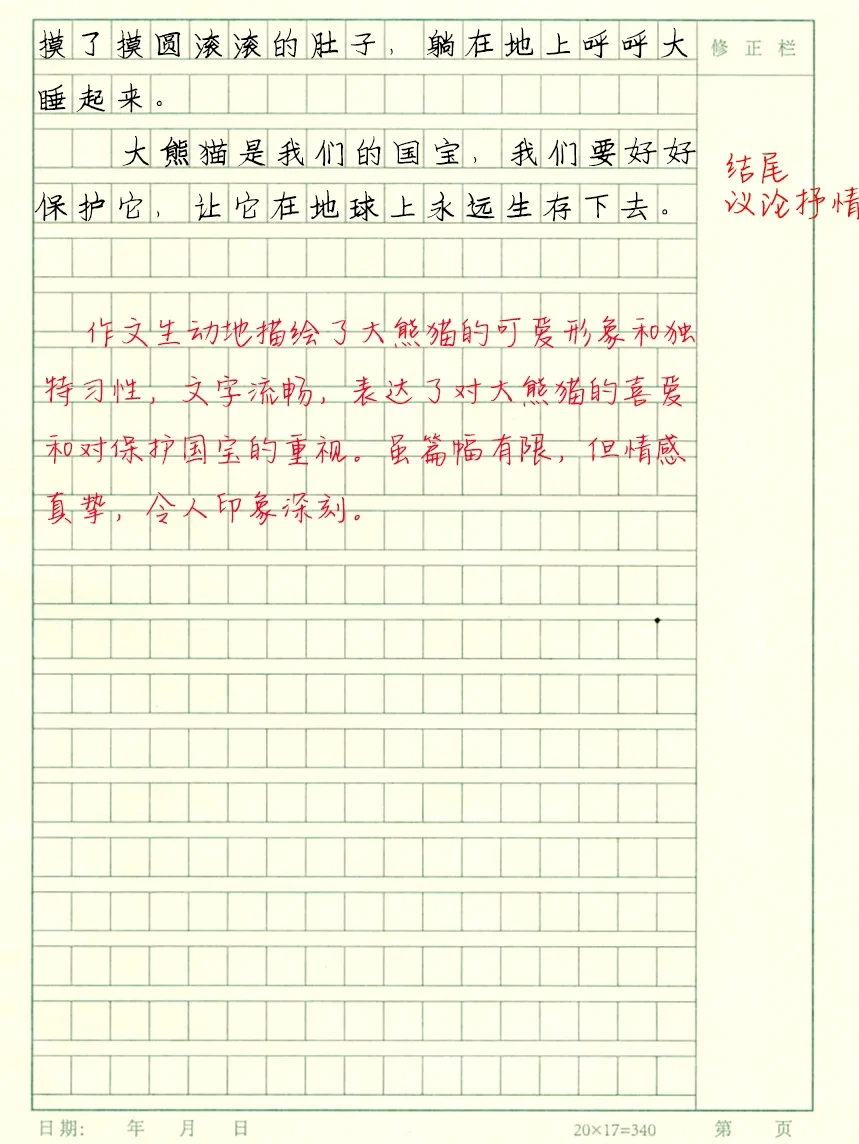 摸了摸圆滚滚的肚子，躺在地上呼呼大
修正栏
睡起来。
大熊猫是我们的国宝，我们要好好
保护它，让它在地球上永远生存下去。
结尾
议论抒情
作文生动地描绘了大熊猫的可爱形象和独
特习性，文字流畅，表达了对大熊猫的喜爱
和对保护国宝的重视。虽篇幅有限，但情感
真挚，令人印象深刻。
日期： 年 月 日 20×17=340 第 页